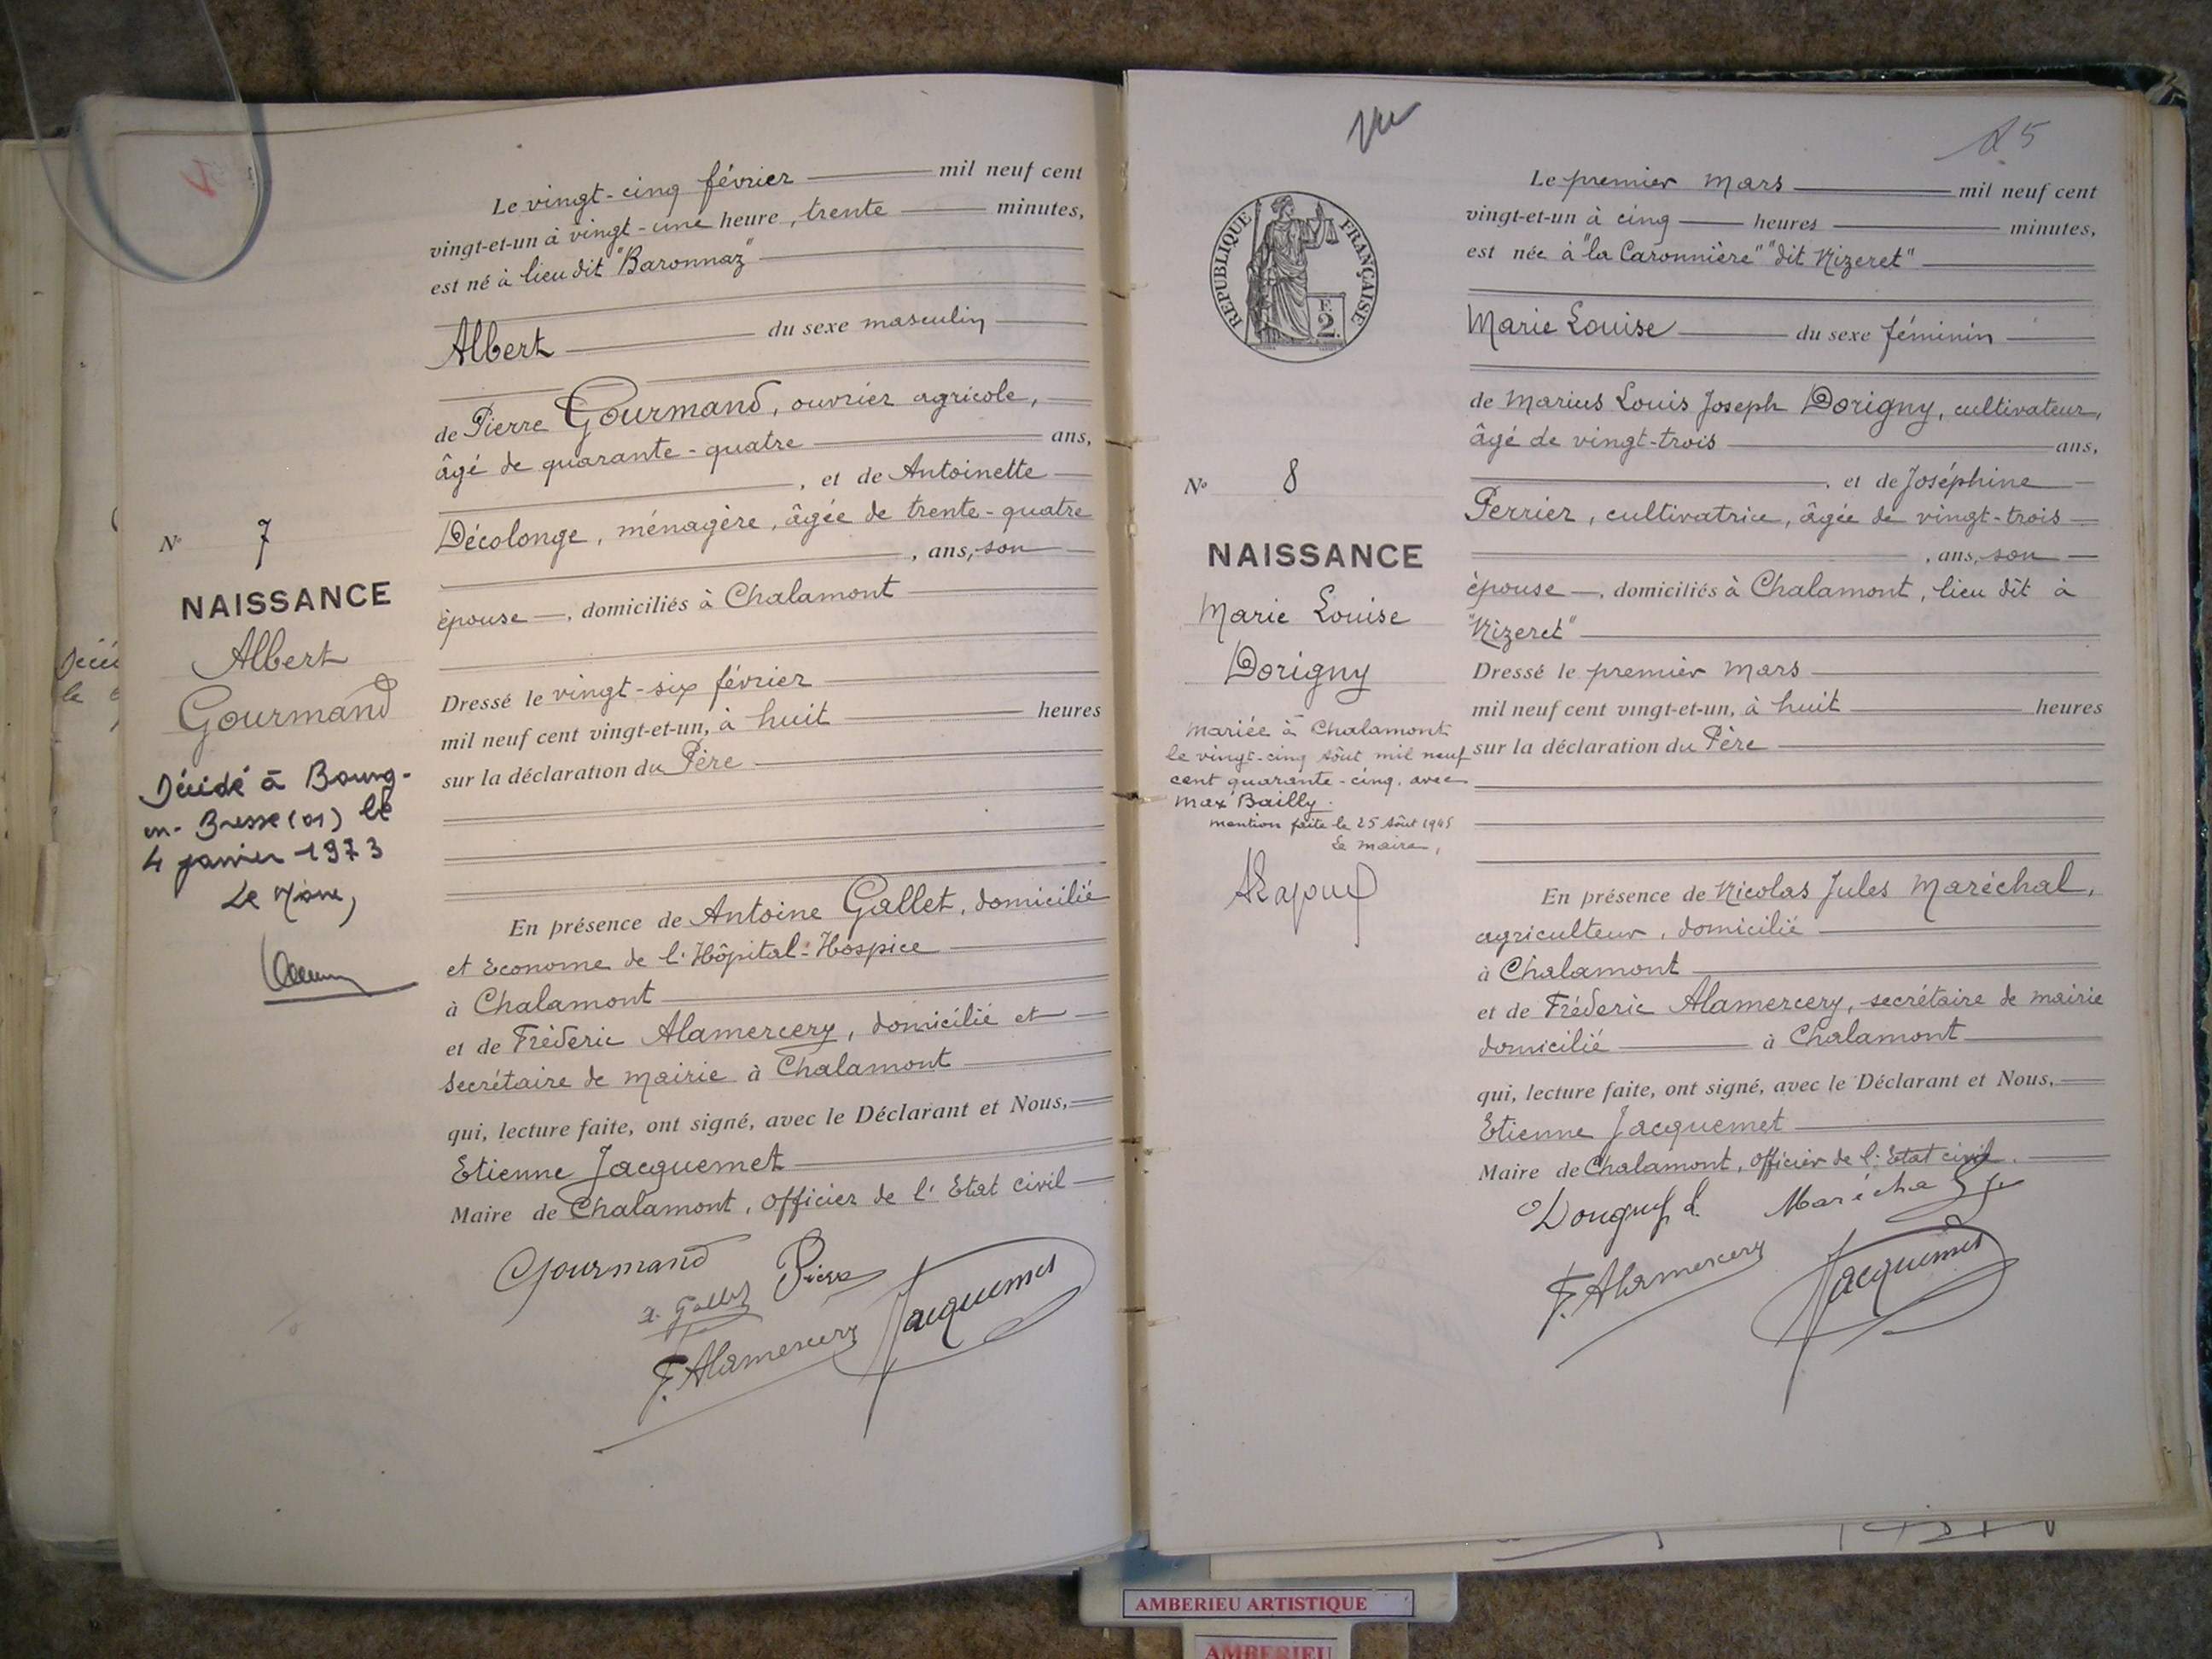 Le vingt-cinq février mil neuf cent
vingt-et-un à vingt-une heure, trente minutes,
est né à lieu dit "Baronnaz"
Albert du sexe masculin
de Pierre Gourmand, ouvrier agricole,
âgé de quarante-quatre ans,
, et de Antoinette
Décolonge, ménagère, âgée de trente-quatre
, ans, son
épouse, domiciliés à Chalamont
Dressé le vingt-six février
mil neuf cent vingt-et-un, à huit heures
sur la déclaration du Père
En présence de Antoine Gallet, domicilié
et Econome de l'Hôpital-Hospice
à Chalamont
et de Fréderic Alamercery, domicilié et
secrétaire de mairie à Chalamont
qui, lecture faite, ont signé, avec le Déclarant et Nous,
Etienne Jacquemet
Maire de Chalamont, Officier de l'Etat civil
Gourmand Pierre
a. Gallet
F. Alamercery Jacquemet
N° 7
NAISSANCE
Albert
Gourmand
Décidé à Bourg-
en-Bresse (01) le
4 janvier 1973
Le Maire,
Décé
le
vu
25
RÉPUBLIQUE FRANÇAISE
F.
2.
Le premier Mars mil neuf cent
vingt-et-un à cinq heures minutes,
est née à "la Caronnière" "dit Nizeret"
Marie Louise du sexe féminin
de Marius Louis Joseph Dorigny, cultivateur,
âgé de vingt-trois ans,
, et de Joséphine
Perrier, cultivatrice, âgée de vingt-trois
, ans, son
épouse, domiciliés à Chalamont, lieu dit à
"Nizeret"
Dressé le premier Mars
mil neuf cent vingt-et-un, à huit heures
sur la déclaration du Père
En présence de Nicolas Jules Maréchal,
agriculteur, domicilié
à Chalamont
et de Fréderic Alamercery, secrétaire de mairie
domicilié à Chalamont
qui, lecture faite, ont signé, avec le Déclarant et Nous,
Etienne Jacquemet
Maire de Chalamont, Officier de l'Etat civil.
Maréchal
F. Alamercery Jacquemet
N° 8
NAISSANCE
Marie Louise
Dorigny
Mariée à Chalamont
le vingt-cinq Août mil neuf
cent quarante-cinq avec
Max Bailly.
mention faite le 25 Août 1945
Le Maire,
AMBERIEU ARTISTIQUE
AMBERIEU